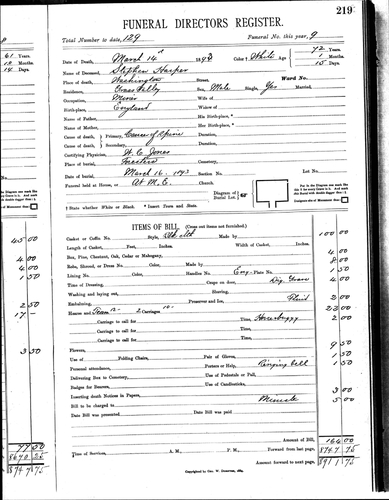 219
FUNERAL DIRECTORS REGISTER.
Total Number to date, 129 Funeral No. this year, 9
Date of Death, March 14th 1893 Color † White Age 72 Years.
1 Months.
15 Days.
Name of Deceased, Stephen Harper
Place of Death, Washington Street, Ward No.
Residence, Sex, Male Single, Yes Married,
Occupation, Miner Wife of
Birthplace, England Widow of
Name of Father, His Birthplace, *
Name of Mother, Her Birthplace, *
Cause of death, Primary, Cancer of Spine Duration,
Cause of death, Secondary, Duration,
Certifying Physician, H. C. Jones
Place of burial, Cemetery.
Date of burial, March 16 1893 Section No. Lot No.
Funeral held at House, or At M. E. Church. Diagram of Burial Lot
† State whether White or Black. * Insert Town and State.
ITEMS OF BILL. (Cross out items not furnished.)
Casket or Coffin No. Style, Made by 100 00
Length of Casket, Feet, Inches. Width of Casket, Inches.
Box, Pine, Chestnut, Oak, Cedar or Mahogany, 4 00
Robe, Shroud, or Dress No. Color, Made by 8 00
Lining No. Color, Handles No. Eng. Plate No. 1 50
Time of Dressing, Crape on door, Dig Grave 4 00
Washing and laying out, Shaving,
Embalming, Preserves and Ice, Fluid 2 00
Hearse and Team 12- 2 Carriages 10- 22 00
Carriage to call for Time, Horse buggy 2 00
Carriage to call for Time,
Carriage to call for Time,
Flowers, 9 50
Use of Folding Chairs, Pair of Gloves, 1 50
Personal attendance, Porters or Help, Ringing bell 1 50
Delivering Box to Cemetery, Use of Pedestals or Pall,
Badges for Bearers, Use of Candlesticks,
Inserting death Notices in Papers, 3 00
Bill to be charged to Minute 5 00
Date Bill was presented Date Bill was paid
Amount of Bill, 164 00
Time of Services, A. M., P. M. Forward from last page, 8747 75
Amount forward to next page, 8911 75